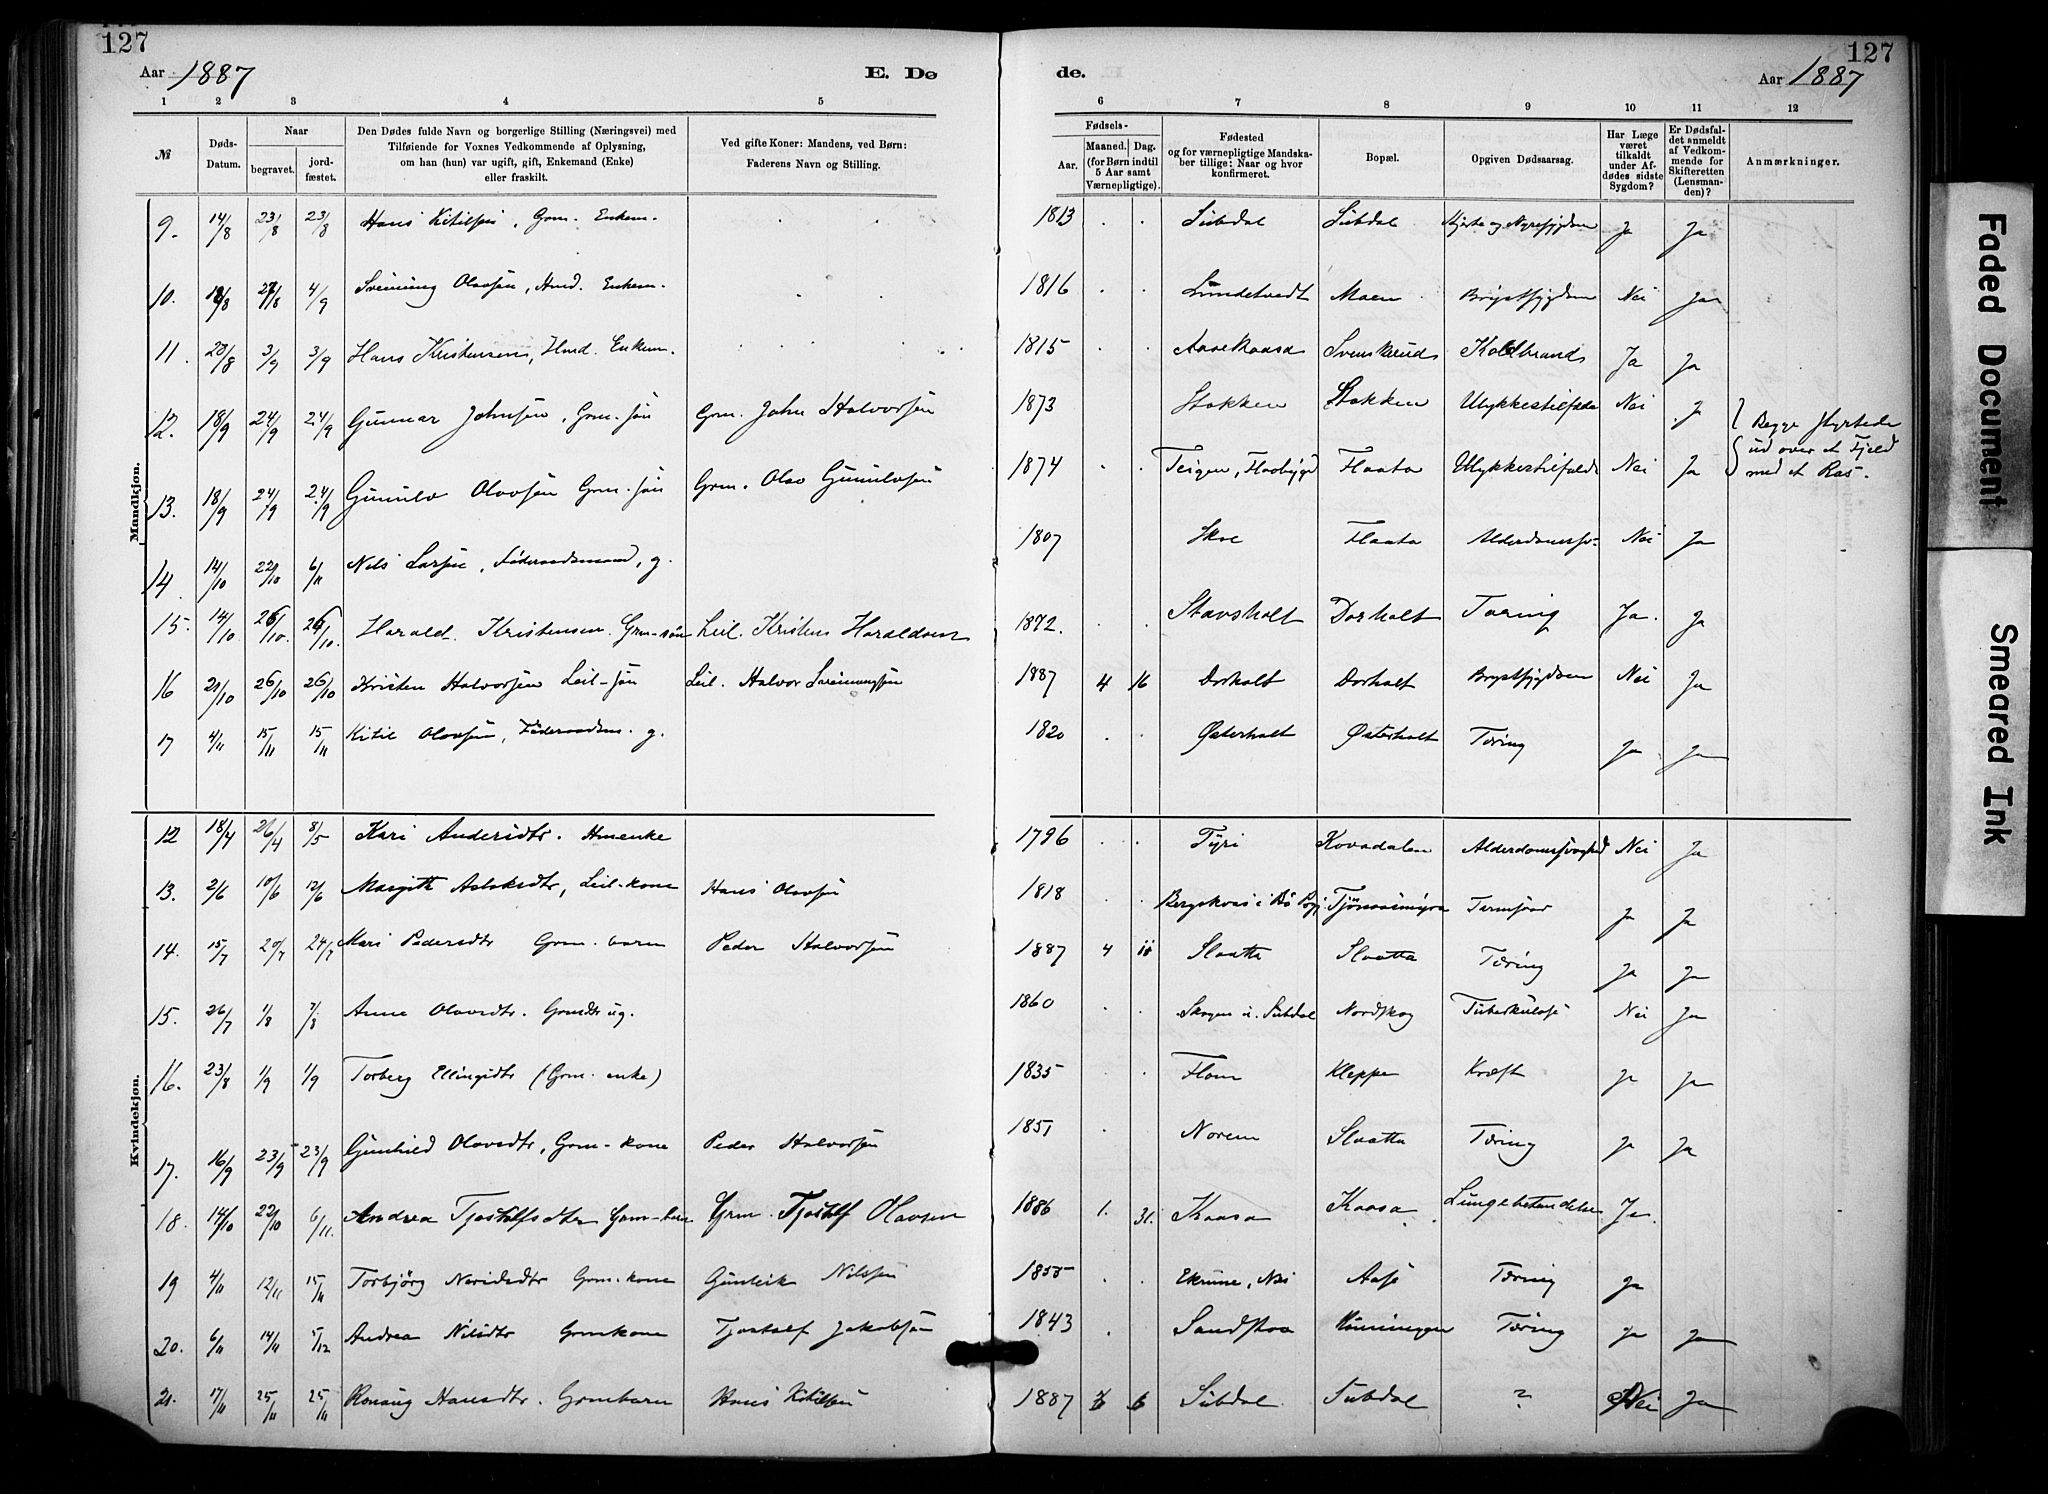 127
127
Aar 1887
E. Dø
de.
Aar 1887
1 2 3 4 5 6 7 8 9 10 11 12
№
Døds-Datum.
Naar
begravet.
jord-fæstet.
Den Dødes fulde Navn og borgerlige Stilling (Næringsvei) med
Tilføiende for Voxnes Vedkommende af Oplysning,
om han (hun) var ugift, gift, Enkemand (Enke)
eller fraskilt.
Ved gifte Koner: Mandens, ved Børn:
Faderens Navn og Stilling.
Fødsels-
Aar.
Maaned. Dag.
(for Børn indtil
5 Aar samt
Værnepligtige).
Fødested
og for værnepligtige Mandska-
ber tillige: Naar og hvor
konfirmeret.
Bopæl.
Opgiven Dødsaarsag.
Har Læge
været
tilkaldt
under Af-
dødes sidste
Sygdom?
Er Dødsfal-
det anmeldt
af Vedkom-
mende for
Skifteretten
(Lensman-
den)?
Anmærkninger.
Mandkjøn.
9. 14/8 23/8 23/8 Hans Kitilsen, Grm. Enkem. 1813 Sübdal Sübdal Hjerte og Nyresygdom Ja Ja
10. 18/8 27/8 4/9 Sveinung Olavsen, Hmd. Enkem. 1816 Lundetvedt Moen Brystsygdom Nei Ja
11. 28/8 3/9 3/9 Hans Kristensen, Hmd. Enkem. 1815 Aasekaasa Svenskerud Koldbrand Ja Ja
12. 18/9 24/9 24/9 Gunnar Johnsen, Grm. søn Grm. John Halvorsen 1873 Stokken Stokken Ulykkestilfælde Nei Ja
13. 18/9 24/9 24/9 Gunnulv Olavsen Grm. søn Grm. Olav Gunnulvsen 1874 Teigen, Flaabygd Flaata Ulykkestilfælde Nei Ja
Begge styrtede
ud over et Fjeld
med et Ras.
14 14/10 22/10 6/11 Nils Larsen, Føderaadsmand, g. 1807 Skoe Flaata Alderdomssv. Nei Ja
15. 14/10 26/10. 26/10. Harald Kristensen. Grm-søn Leil. Kristen Haraldsen 1872. Stavsholt Dorholt Tæring Ja. Ja
16 21/10 26/10 26/10 Kristen Halvorsen Leil-søn Leil. Halvor Sveinungsen 1887 4 16 Dorholt Dorholt Brystsygdom Nei Ja
17 4/11 15/11 15/11 Kitil Olavsen, Føderaadsm. g. 1820 Østerholt Østerholt Tæring Ja Ja
Kvindekjøn.
12 18/4 26/4 8/5 Kari Andersdtr. Hmenke 1796 Tyri Kovadalen Alderdomssvaghed Nei Ja
13. 2/6 10/6 12/6 Margith Aslaksdtr, Leil-kone Hans Olavsen 1818 Ja Ja
14. 15/7 20/7 24/7 Mari Pedersdtr Grm. barn Peder Halvorsen 1887 4 Slaatta Slaatta Tæring Ja Ja
15. 26/7 1/8 7/8 Anne Olavsdtr. Grmdtr ug. 1860 Skogen i Sübdal Nordskog Tuberkulose Nei Ja
16. 23/8 1/9 1/9 Torberg Ellingsdtr (Grm. enke) 1835 Flom Kleppe Kræft Ja Ja
17. 16/9 23/9 23/9 Gunhild Olavsdtr, Grm-kone Peder Halvorsen 1851 Norem Slaatta Tæring Ja Ja
18. 14/10 22/10 6/11. Andrea Tjostolfsdtr Grm-barn Grm. Tjostolf Olavsen 1886 1. 31. Kaasa Kaasa Lungebetændelse Ja.
19 4/11 12/11 15/11 Torbjörg Neridsdtr Grm-kone Gunleik Nilssen 1855 Ekrune, Aase Tæring Ja
20. 6/11 14/11 5/12 Andrea Nilsdtr Grmkone Tjostolf Jakobsen 1843 Sandskaa Tæring Ja Ja
21. 17/11 25/11 25/11 Rønaug Hansdtr. Grmbarn Hans Kitilsen 1887 Sübdal Sübdal ? Nei Ja
Faded Document
Smeared Ink